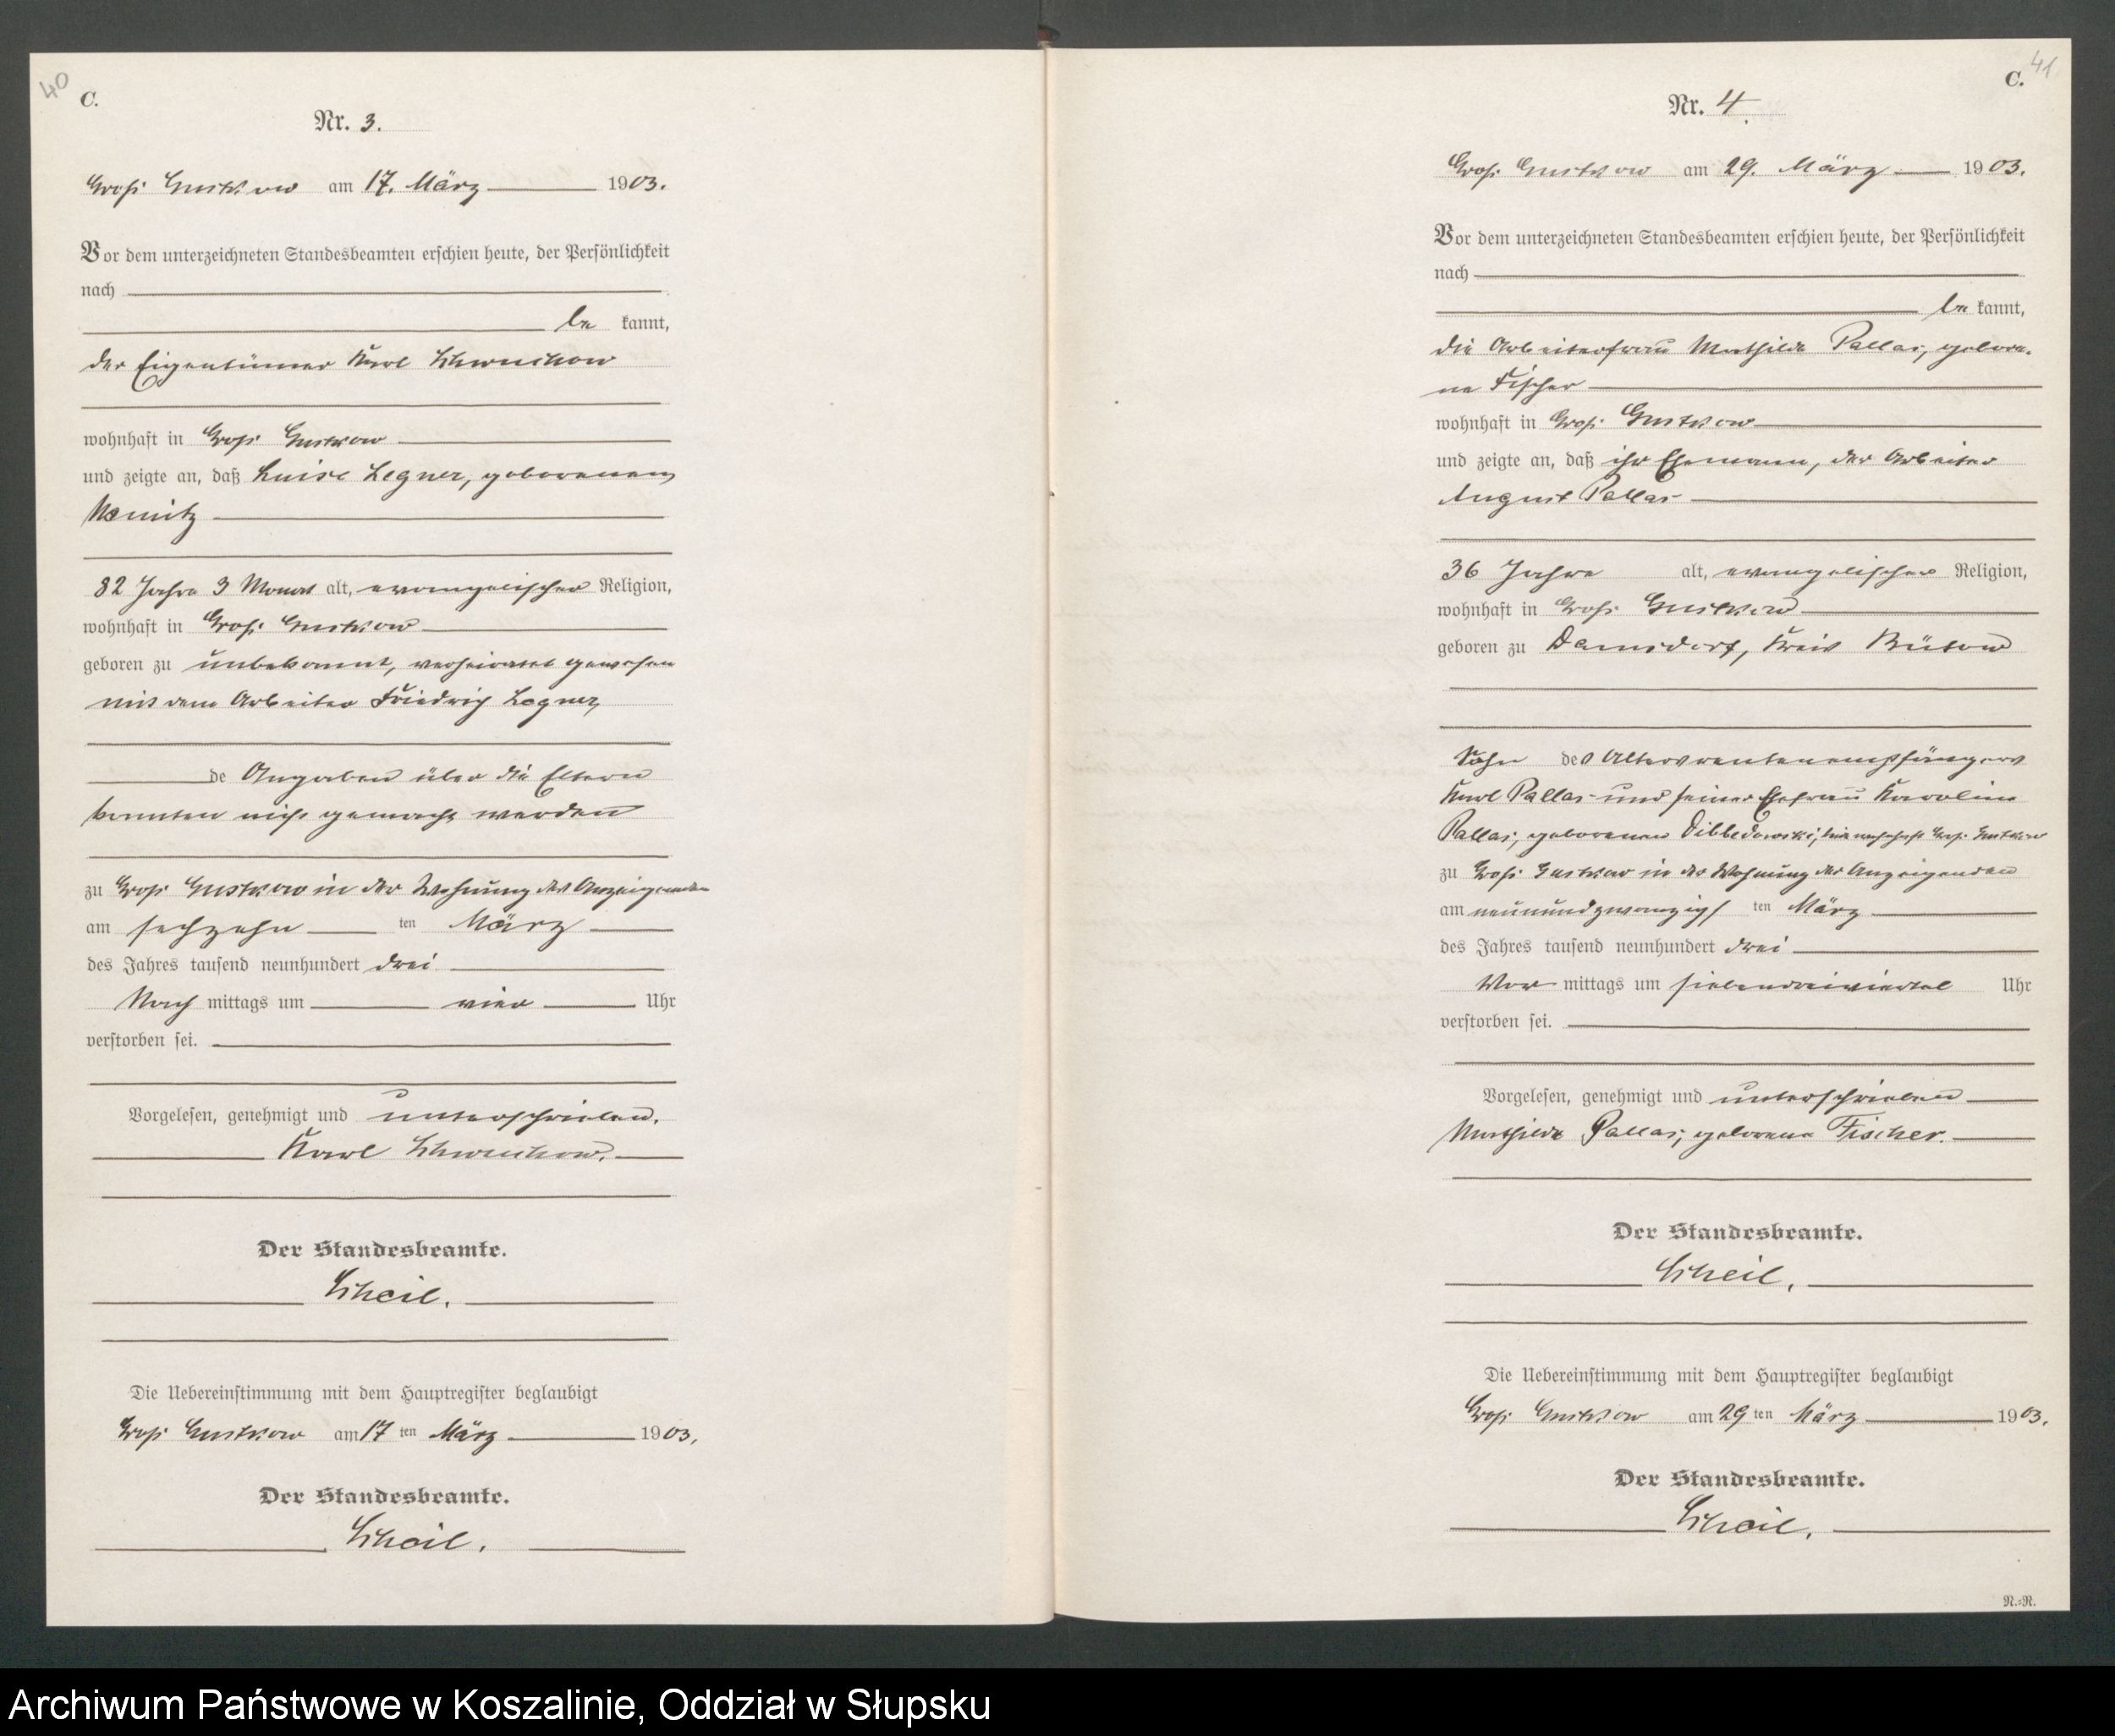 40
C.
Nr. 3.
Groß Gustkow am 17. März 1903.
Vor dem unterzeichneten Standesbeamten erschien heute, der Persönlichkeit
nach
be kannt,
der Eigentümer Karl
wohnhaft in Groß Gustkow
und zeigte an, daß Luise Legner, geborenen
Namitz
82 Jahre 3 Monat alt, evangelischer Religion,
wohnhaft in Groß Gustkow
geboren zu unbekannt, verheiratet gewesen
mit dem Arbeiter Friedrich Legner,
de Angaben über die Eltern
konnten nicht gemacht werden
zu Groß Gustkow in der Wohnung des Anzeigenden
am sechzehn ten März
des Jahres tausend neunhundert drei
Nach mittags um vier Uhr
verstorben sei.
Vorgelesen, genehmigt und unterschrieben.
Karl
Der Standesbeamte.
Scheil.
Die Uebereinstimmung mit dem Hauptregister beglaubigt
Groß Gustkow am 17 ten März 1903.
Der Standesbeamte.
Scheil.
41
C.
Nr. 4.
Groß Gustkow am 29. März 1903.
Vor dem unterzeichneten Standesbeamten erschien heute, der Persönlichkeit
nach
be kannt,
die Arbeiterfrau Mathilde Pallas, gebore-
ne Fischer
wohnhaft in Groß Gustkow
und zeigte an, daß ihr Ehemann, der Arbeiter
August Pallas
36 Jahre alt, evangelischer Religion,
wohnhaft in Groß Gustkow
geboren zu Damsdorf, Kreis Bütow
Sohn des Altersrentenempfängers
Karl Pallas und seiner Ehefrau Karoline
Pallas, geborenen Dibbedowski, wohnhaft Groß Gustkow
zu Groß Gustkow in der Wohnung der Anzeigenden
am neunundzwanzigs ten März
des Jahres tausend neunhundert drei
Vor mittags um siebendreiviertel Uhr
verstorben sei.
Vorgelesen, genehmigt und unterschrieben
Mathilde Pallas, geborene Fischer.
Der Standesbeamte.
Scheil.
Die Uebereinstimmung mit dem Hauptregister beglaubigt
Groß Gustkow am 29 ten März 1903.
Der Standesbeamte.
Scheil.
N.=N.
Archiwum Państwowe w Koszalinie, Oddział w Słupsku